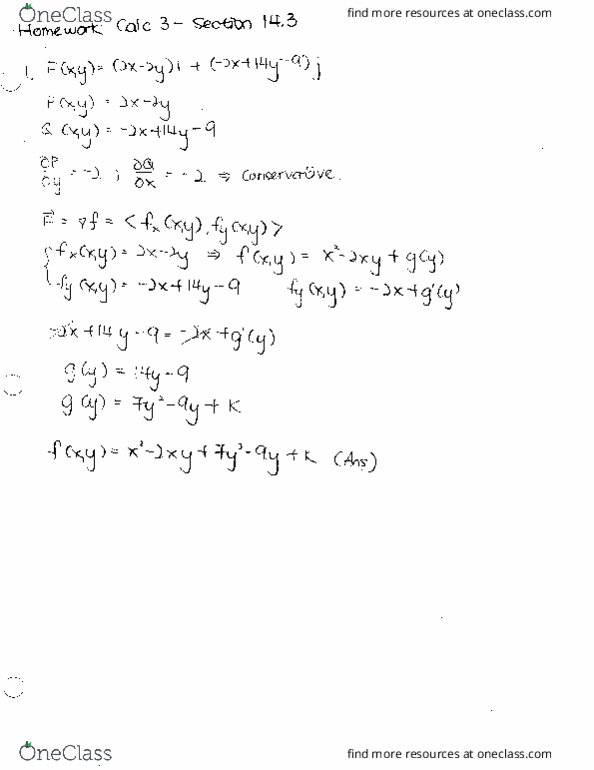 OneClass
find more resources at oneclass.com
Homework Calc 3 - Section 14.3
1. F(x,y) = (2x-2y)i + (-2x+14y-9)j
P(x,y) = 2x-2y
Q(x,y) = -2x+14y-9
∂P/∂y = -2 ; ∂Q/∂x = -2 ⇒ conservative.
F⃗ = ∇f = <fx(x,y), fy(x,y)>
{ fx(x,y) = 2x-2y ⇒ f(x,y) = x²-2xy + g(y)
fy(x,y) = -2x+14y-9 fy(x,y) = -2x+g'(y)
-2x+14y-9 = -2x+g'(y)
g'(y) = 14y-9
g(y) = 7y²-9y+K
f(x,y) = x²-2xy+7y²-9y+K (Ans)
OneClass
find more resources at oneclass.com